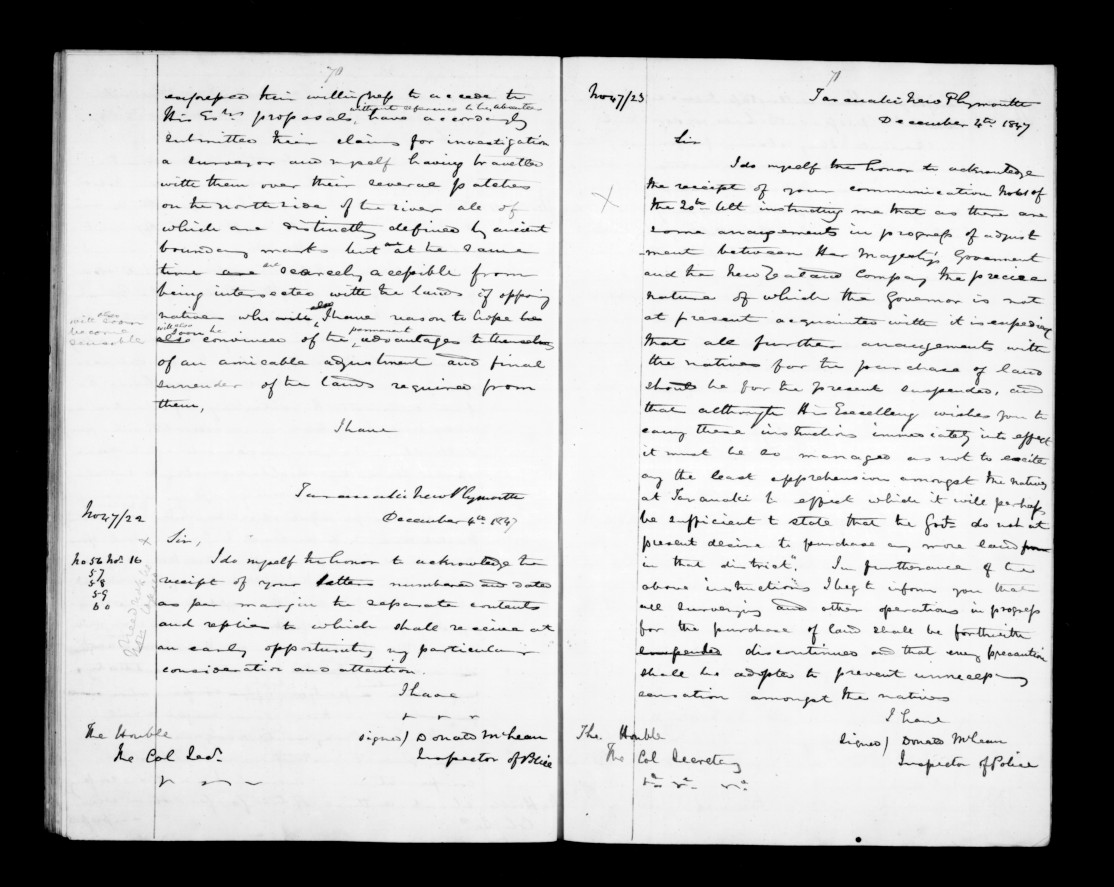 70
expressed their willingness to accede to
without reference to the absentees
His Ex.ys proposals, have accordingly
submitted their claims for investigation
a surveyor and myself having travelled
with them over their several patches
on the north side of the river all of
which are distinctly defined by ancient
boundary marks but at the same
time are scarcely accessible from
being intersected with the lands of opposing
natives who will, also I have reason to hope be
will also soon become sensible
will also
soon be
also convinced of the permanent advantages to themselves
of an amicable adjustment and final
surrender of the lands required from
them,
I have
Taranaki New Plymouth
No 47/22
December 4th 1847
Sir,
No 56 Nov. 16
57
58
59
60
I do myself the honor to acknowledge the
receipt of your letters numbered and dated
as per margin the separate contents
and replies to which shall receive at
an early opportunity my particular
consideration and attention.
I have
The Honble
signed) Donald McLean
The Col Sec.
Inspector of Police
71
No 47/23
Taranaki New Plymouth
December 4th 1847
Sir
I do myself the honor to acknowledge
the receipt of your communication No 61 of
the 20th Ult instructing me that as there are
some arrangements in progress of adjust
-ment between Her Majesty's Government
and the New Zealand Company the precise
nature of which the Governor is not
at present acquainted with it is expedient
that all further arrangements with
the natives for the purchase of land
should be for the present suspended, and
that although His Excellency wishes you to
carry these instructions immediately into effect
it must be so managed as not to excite
any the least apprehension amongst the natives
at Taranaki to effect which it will perhaps
be sufficient to state that the Govt do not at
present desire to purchase any more land from
in that district". In furtherance of the
above instructions I beg to inform you that
all surveying and other operations in progress
for the purchase of land shall be forthwith
suspended discontinued and that every precaution
shall be adopted to prevent unnecessary
sensation amongst the natives
I have
The Honble
signed) Donald McLean
The Col Secretary
Inspector of Police